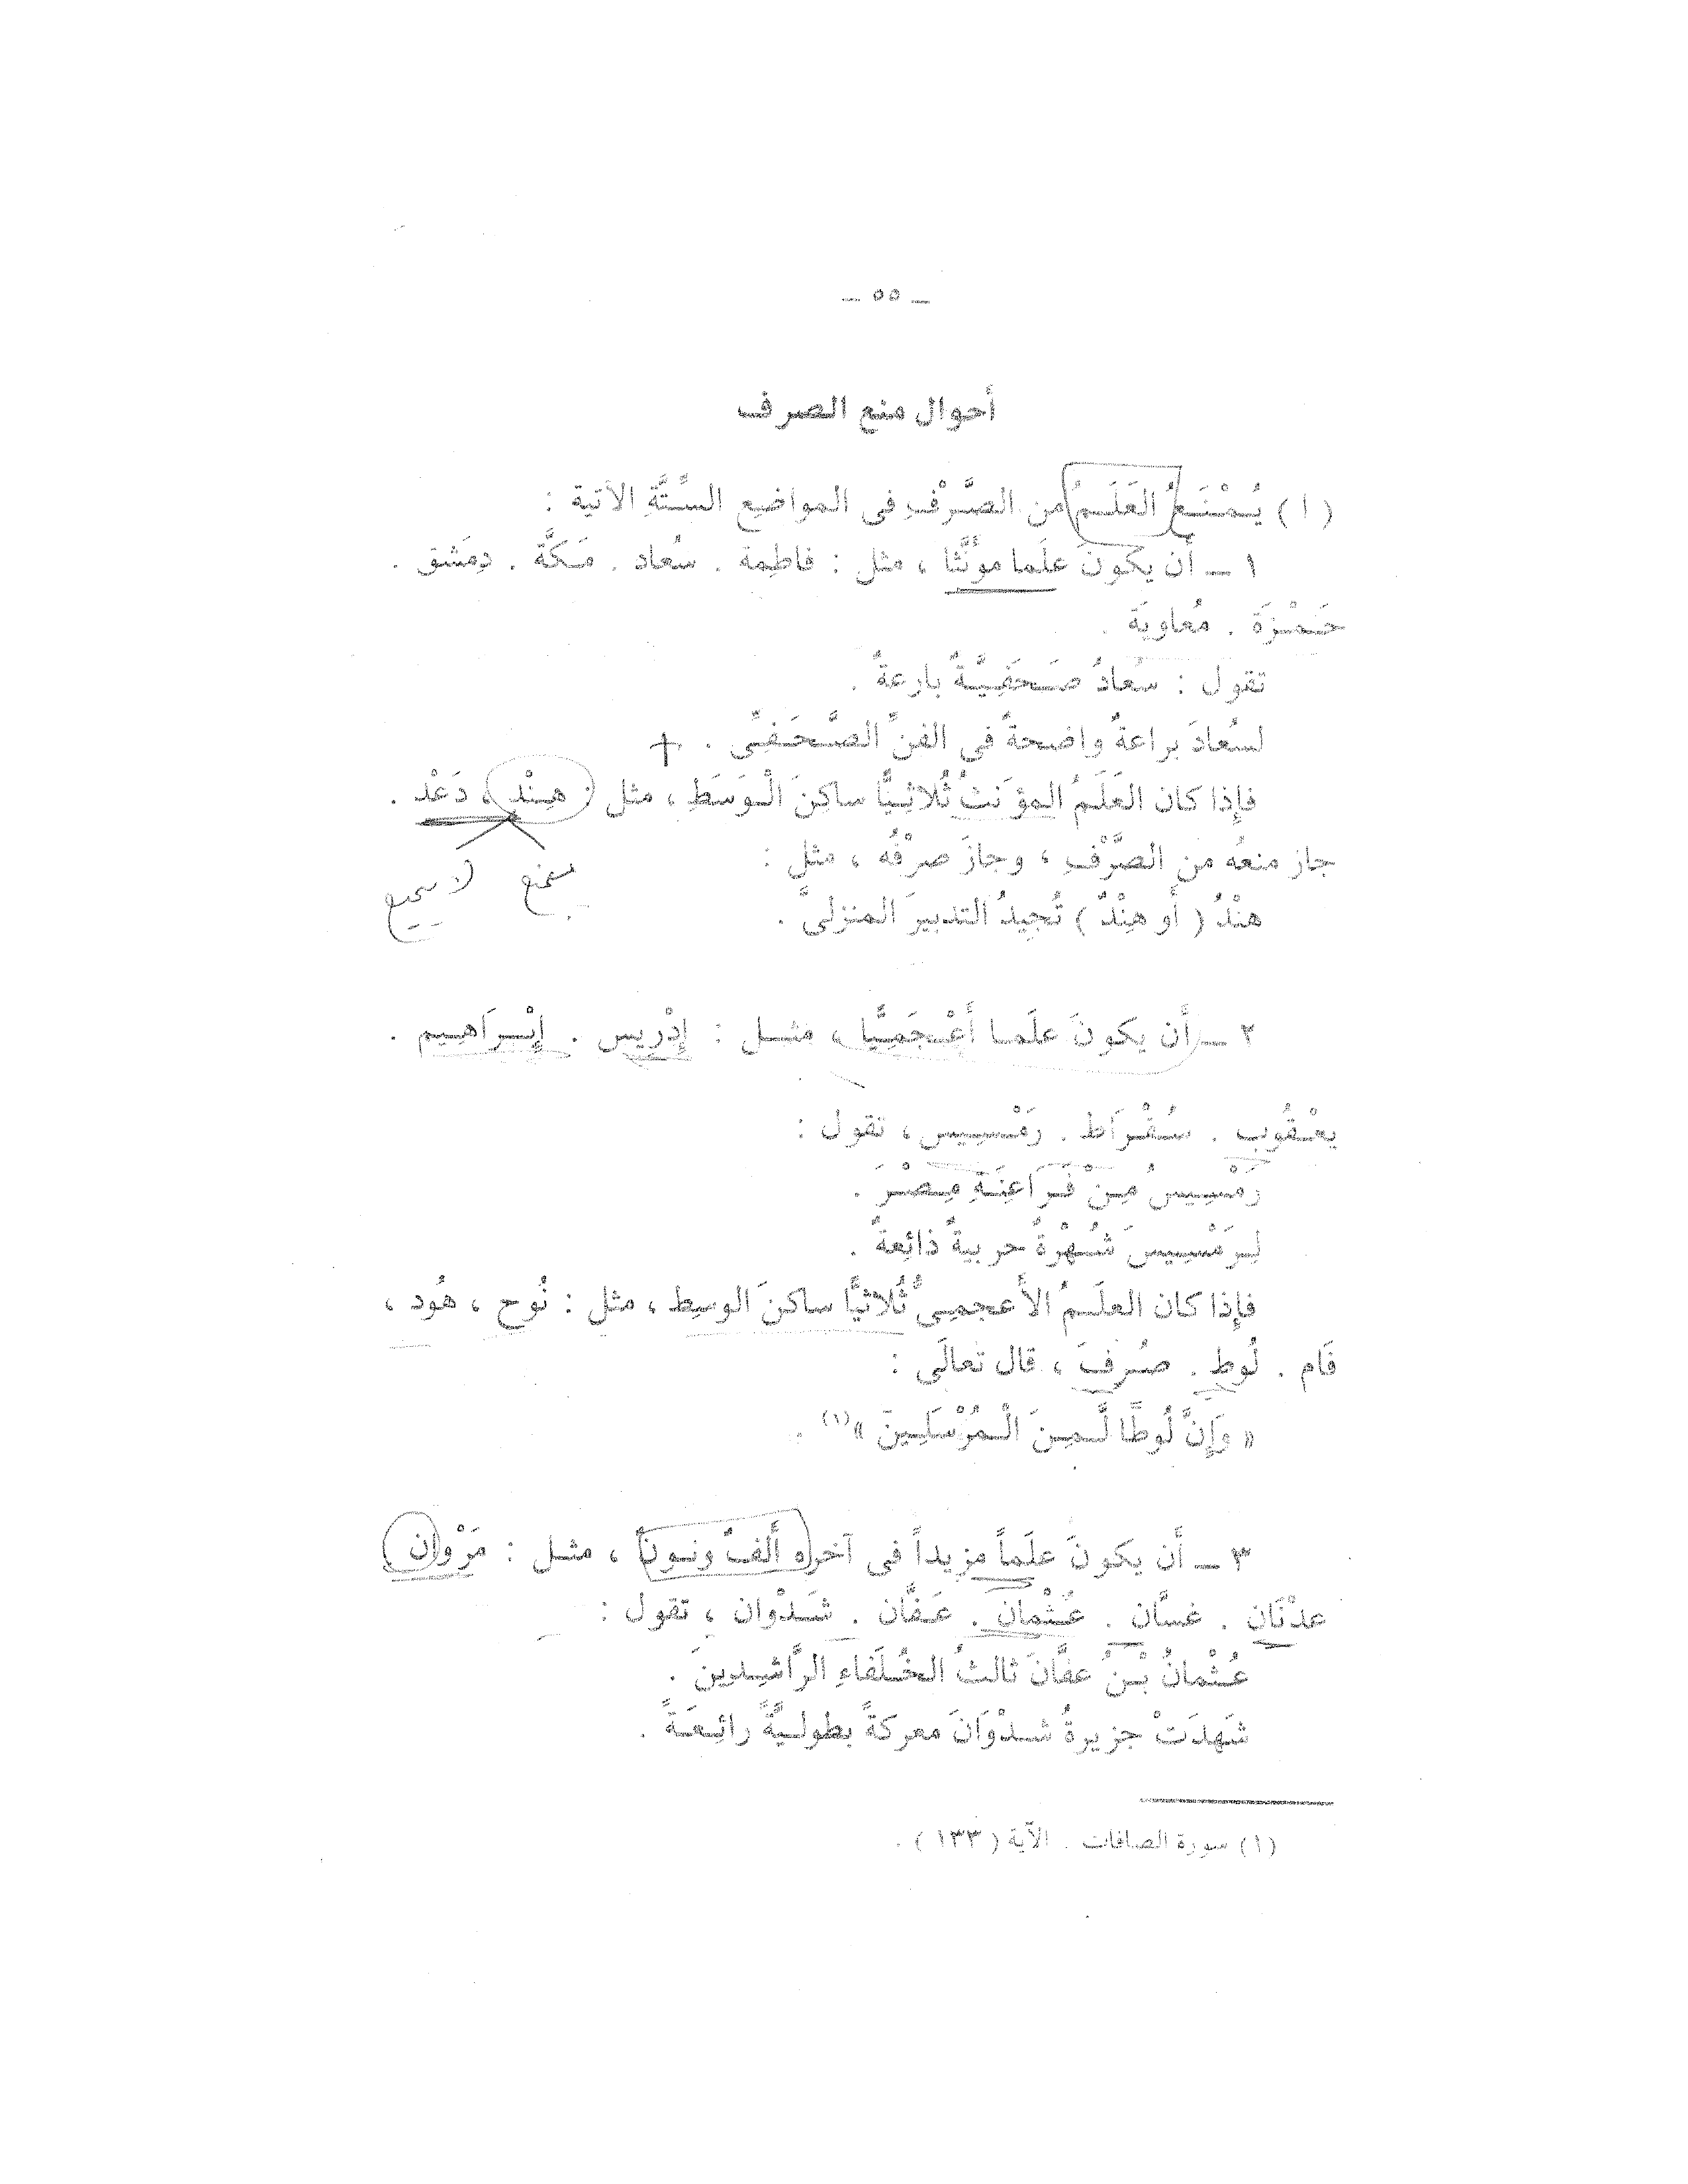 – ٥٥ –
أحوال منع الصرف
( ا ) يُـمْنَـعُ العَلَـمُ من الصَّرْفِ فى المواضيع السِّتَّةِ الآتية :
١ – أن يكونَ علَما مؤنَّثا ، مثل : فاطِمة . سُعاد . مَكَّة . دِمَشق .
حَمْزَة . مُعاويَة .
تقول : سُعادُ صَحَفِيَّةٌ بارعةٌ .
لسُعادَ براعةٌ واضحةٌ فى الفنِّ الصَّحَفِىِّ .
فإذا كان العَلَمُ المؤنثُ ثُلاثِيًّا ساكِنَ الْوَسَطِ ، مثل : هِنْد ، دَعْد .
جاز منعُه من الصَّرْفِ ، وجازَ صرْفُه ، مثل :
يمنع لا يمنع
هنْدُ ( أو هِنْدٌ ) تُجِيدُ التدبيرَ المنزلىَّ .
٢ – أن يكونَ علَما أعْجَمِيًّا ، مثل : إدْرِيس . إبْرَاهِيم .
يعْقُوب . سُقْرَاط . رَمْسِيس ، تقول :
رَمْسِيسُ مِنْ فَرَاعِنَةِ مِصْرَ .
لِرَمْسِيسَ شُهْرَةٌ حربيةٌ ذائِعةٌ .
فإذا كان العلَمُ الأعجمِىُّ ثُلاثيًّا ساكنَ الوسِطِ ، مثل : نُوح ، هُود ،
فَام . لُوط . صُرِفَ ، قال تعالَى :
« وَإِنَّ لُوطًا لَّمِنَ الْمُرْسَلِينَ »(١) .
٣ – أن يكونَ علَماً مزيداً فى آخره ألفٌ ونونٌ ، مثل : مَرْوان
عدْنَان . غسَّان . عُثْمان . عَفَّان . شَدْوان ، تقول :
عُثْمانُ بْنُ عفَّانَ ثالثُ الخُلَفَاءِ الرَّاشِدِينَ .
شَهِدَتْ جزيرةُ شدْوَانَ معركةً بطوليَّةً رائِعَةً .
(١) سورة الصافات . الآية ( ١٣٣ ) .